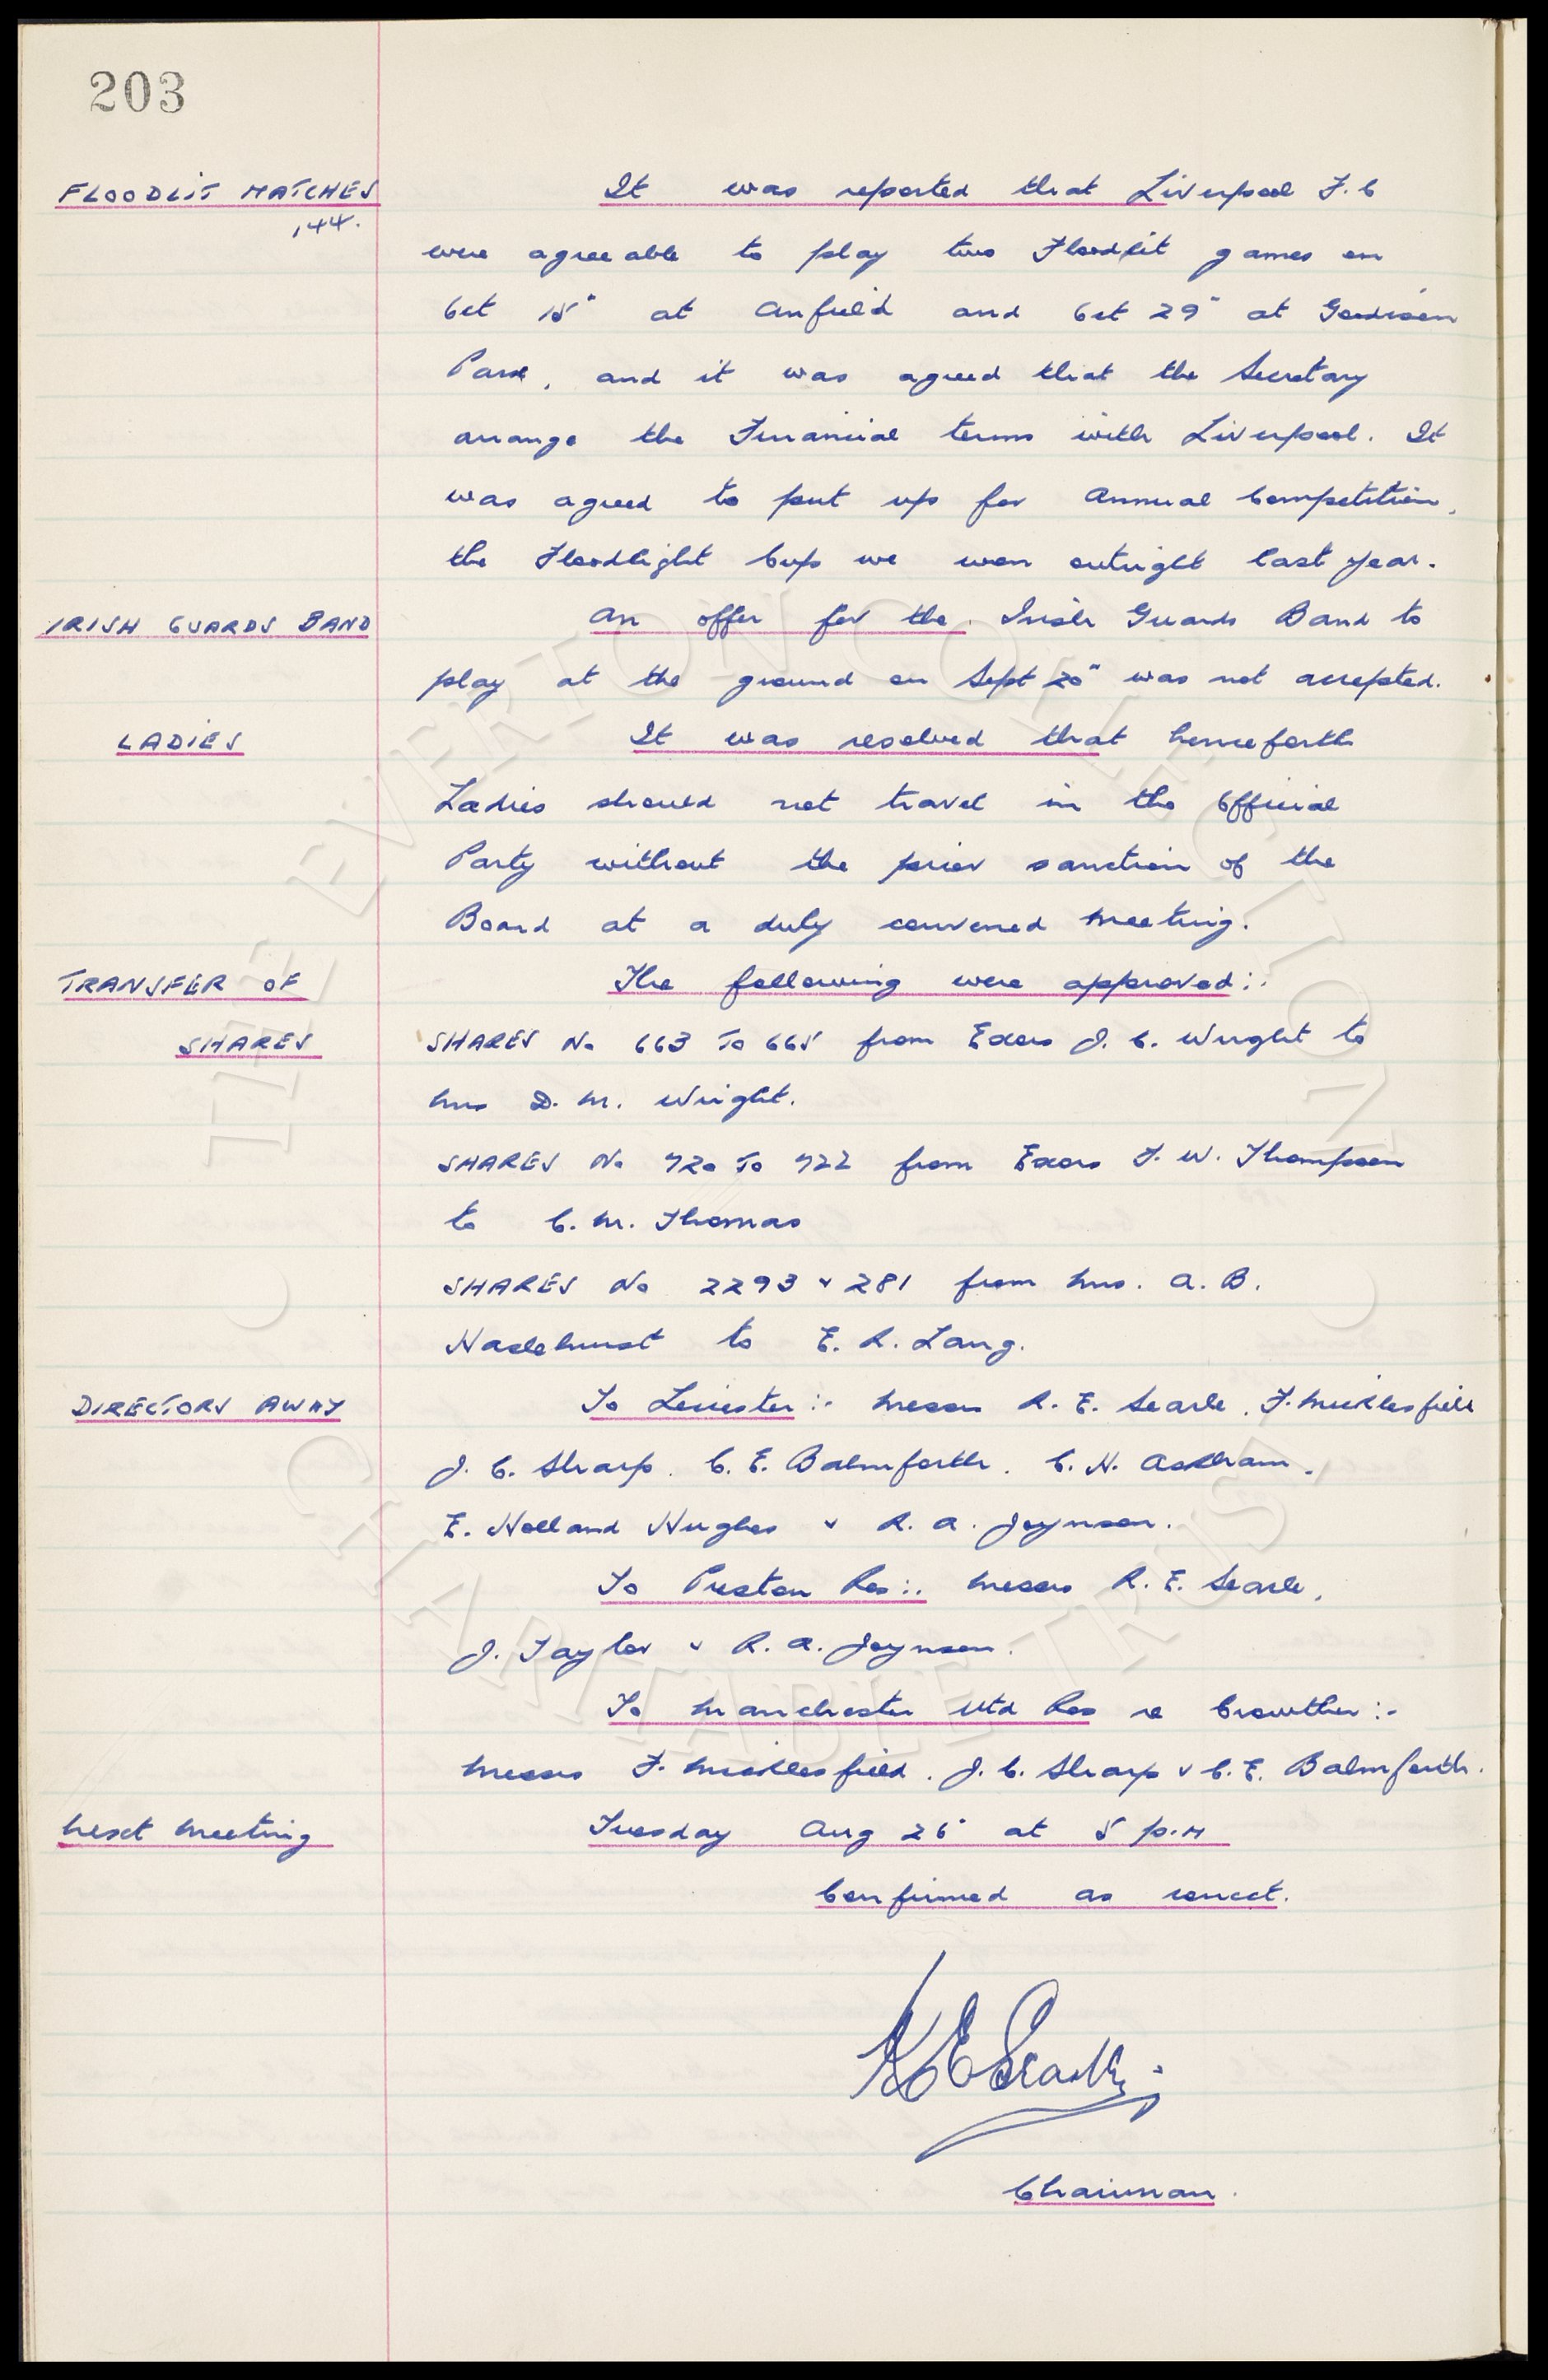 203
FLOODLIT MATCHES It was reported that Liverpool F.C
144.
were agreeable to play two Floodlit games on
Oct 15" at Anfield and Oct 29" at Goodison
Park, and it was agreed that the Secretary
arrange the Financial terms with Liverpool. It
was agreed to put up for Annual Competition,
the Floodlight Cup we won outright last year.
IRISH GUARDS BAND An offer for the Irish Guards Band to
play at the ground on Sept 20" was not accepted.
LADIES It was resolved that henceforth
Ladies should not travel in the Official
Party without the prior sanction of the
Board at a duly convened Meeting.
TRANSFER OF The following were approved:-
SHARES SHARES No 663 To 665 from Exors J. C. Wright to
Mrs D. M. Wright.
SHARES No 720 To 722 from Exors F. W. Thompson
to C. M. Thomas
SHARES No 2293 & 281 from Mrs. A. B.
Haslehurst to E. R. Lang.
DIRECTORS AWAY To Leicester:- Messrs R. E. Searle, F. Micklesfield
J. C. Sharp, C. E. Balmforth, C. H. Askham,
E. Holland Hughes & R. A. Joynson.
To Preston Res:- Messrs R. E. Searle,
J. Taylor & R. A. Joynson.
To Manchester Utd Res re Crowther:-
Messrs F. Micklesfield, J. C. Sharp & C. E. Balmforth.
Next Meeting Tuesday Aug 26" at 5 p.m
Confirmed as correct.
Chairman.
THE EVERTON COLLECTION
CHARITABLE TRUST